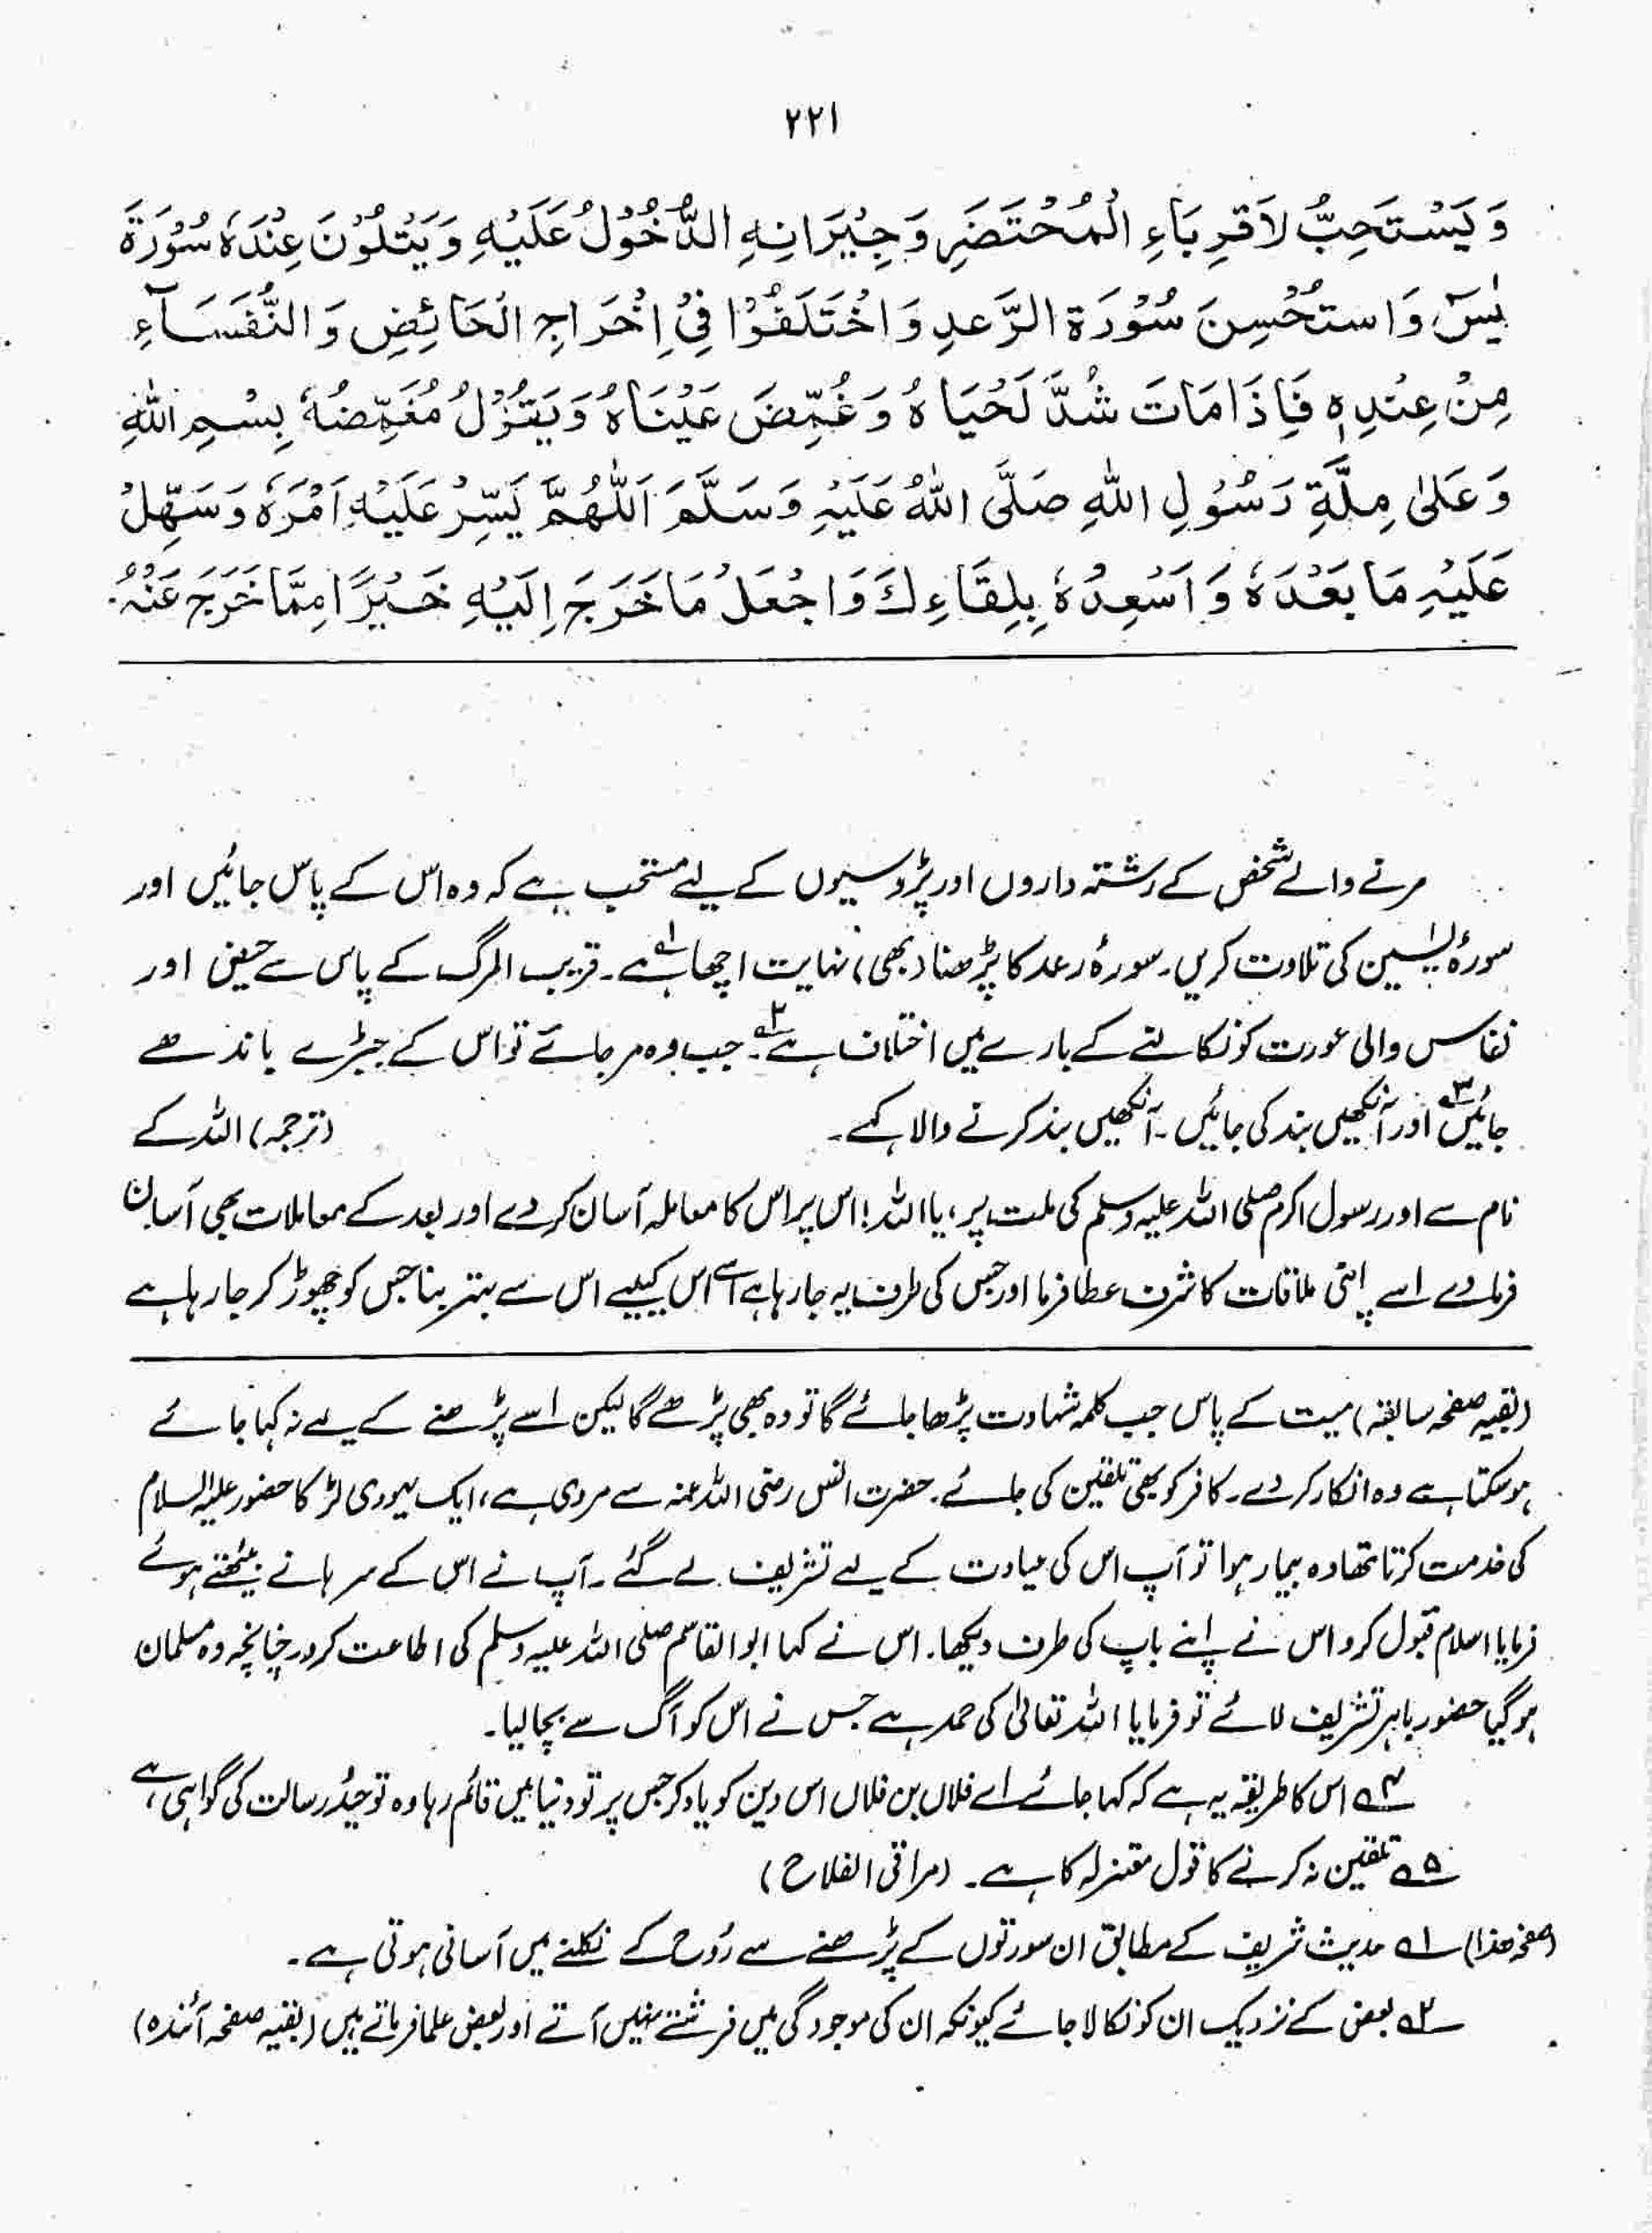 ۲۲۱
وَيَسْتَحِبُّ لِاَقْرِبَاءِ الْمُحْتَضَرِ وَجِيْرَانِهِ الدُّخُوْلُ عَلَيْهِ وَيَتْلُوْنَ عِنْدَهٗ سُوْرَةَ
يٰسٓ وَاسْتُحْسِنَ سُوْرَة الرَّعدِ وَاخْتَلَفُوْا فِيْ اِخْرَاجِ الْحَائِضِ وَالنُّفَسَآءِ
مِنْ عِنْدِهٖ فَاِذَا مَاتَ شُدَّ لَحْيَاهُ وَغُمِّضَ عَيْنَاهُ وَيَقُوْلُ مُغَمِّضُهٗ بِسْمِ اللّٰهِ
وَعَلىٰ مِلَّةِ رَسُوْلِ اللّٰهِ صَلَّى اللّٰهُ عَلَيْهِ وَسَلَّمَ اَللّٰهُمَّ يَسِّرْ عَلَيْهِ اَمْرَهٗ وَسَهِّلْ
عَلَيْهِ مَا بَعْدَهٗ وَاَسْعِدْهُ بِلِقَاءِكَ وَاجْعَلْ مَا خَرَجَ اِلَيْهِ خَيْرًا مِمَّا خَرَجَ عَنْهُ.
مرنے والے شخص کے رشتہ داروں اور پڑوسیوں کے لیے مستحب ہے کہ وہ اس کے پاس جائیں اور
سورۂ یٰسین کی تلاوت کریں۔ سورۂ رعد کا پڑھنا (بھی) نہایت اچھا ہے۱؎۔ قریب المرگ کے پاس سے حیض اور
نفاس والی عورت کو نکالنے کے بارے میں اختلاف ہے۲؎۔ جب وہ مر جائے تو اس کے جبڑے باندھے
جائیں۳؎ اور آنکھیں بند کی جائیں۔ آنکھیں بند کرنے والا کہے۔ (ترجمہ) اللہ کے
نام سے اور رسول اکرم صلی اللہ علیہ وسلم کی ملت پر، یا اللہ! اس پر اس کا معاملہ آسان کر دے اور بعد کے معاملات بھی آسان
فرما دے اسے اپنی ملاقات کا شرف عطا فرما اور جس کی طرف یہ جا رہا ہے اسے اس کیلیے اس سے بہتر بنا جس کو چھوڑ کر جا رہا ہے
(بقیہ صفحہ سابقہ) میت کے پاس جب کلمہ شہادت پڑھا جائے گا تو وہ بھی پڑھے گا لیکن اسے پڑھنے کے لیے نہ کہا جائے
ہو سکتا ہے وہ انکار کر دے۔ کافر کو بھی تلقین کی جائے۔ حضرت انس رضی اللہ عنہ سے مروی ہے، ایک یہودی لڑکا حضور علیہ السلام
کی خدمت کرتا تھا وہ بیمار ہوا تو آپ اس کی عیادت کے لیے تشریف لے گئے۔ آپ نے اس کے سرہانے بیٹھتے ہوئے
فرمایا اسلام قبول کرو اس نے اپنے باپ کی طرف دیکھا۔ اس نے کہا ابوالقاسم صلی اللہ علیہ وسلم کی اطاعت کرو۔ چنانچہ وہ مسلمان
ہو گیا حضور باہر تشریف لائے تو فرمایا اللہ تعالیٰ کی حمد ہے جس نے اس کو آگ سے بچا لیا۔
۴؎ اس کا طریقہ یہ ہے کہ کہا جائے اے فلاں بن فلاں اس دین کو یاد کر جس پر تو دنیا میں قائم رہا وہ توحید و رسالت کی گواہی ہے،
۵؎ تلقین نہ کرنے کا قول معتزلہ کا ہے۔ (مراقی الفلاح)
(صفحہ ھذا) ۱؎ حدیث شریف کے مطابق ان سورتوں کے پڑھنے سے رُوح کے نکلنے میں آسانی ہوتی ہے۔
۲؎ بعض کے نزدیک ان کو نکالا جائے کیونکہ ان کی موجودگی میں فرشتے نہیں آتے اور بعض علما فرماتے ہیں (بقیہ صفحہ آئندہ)